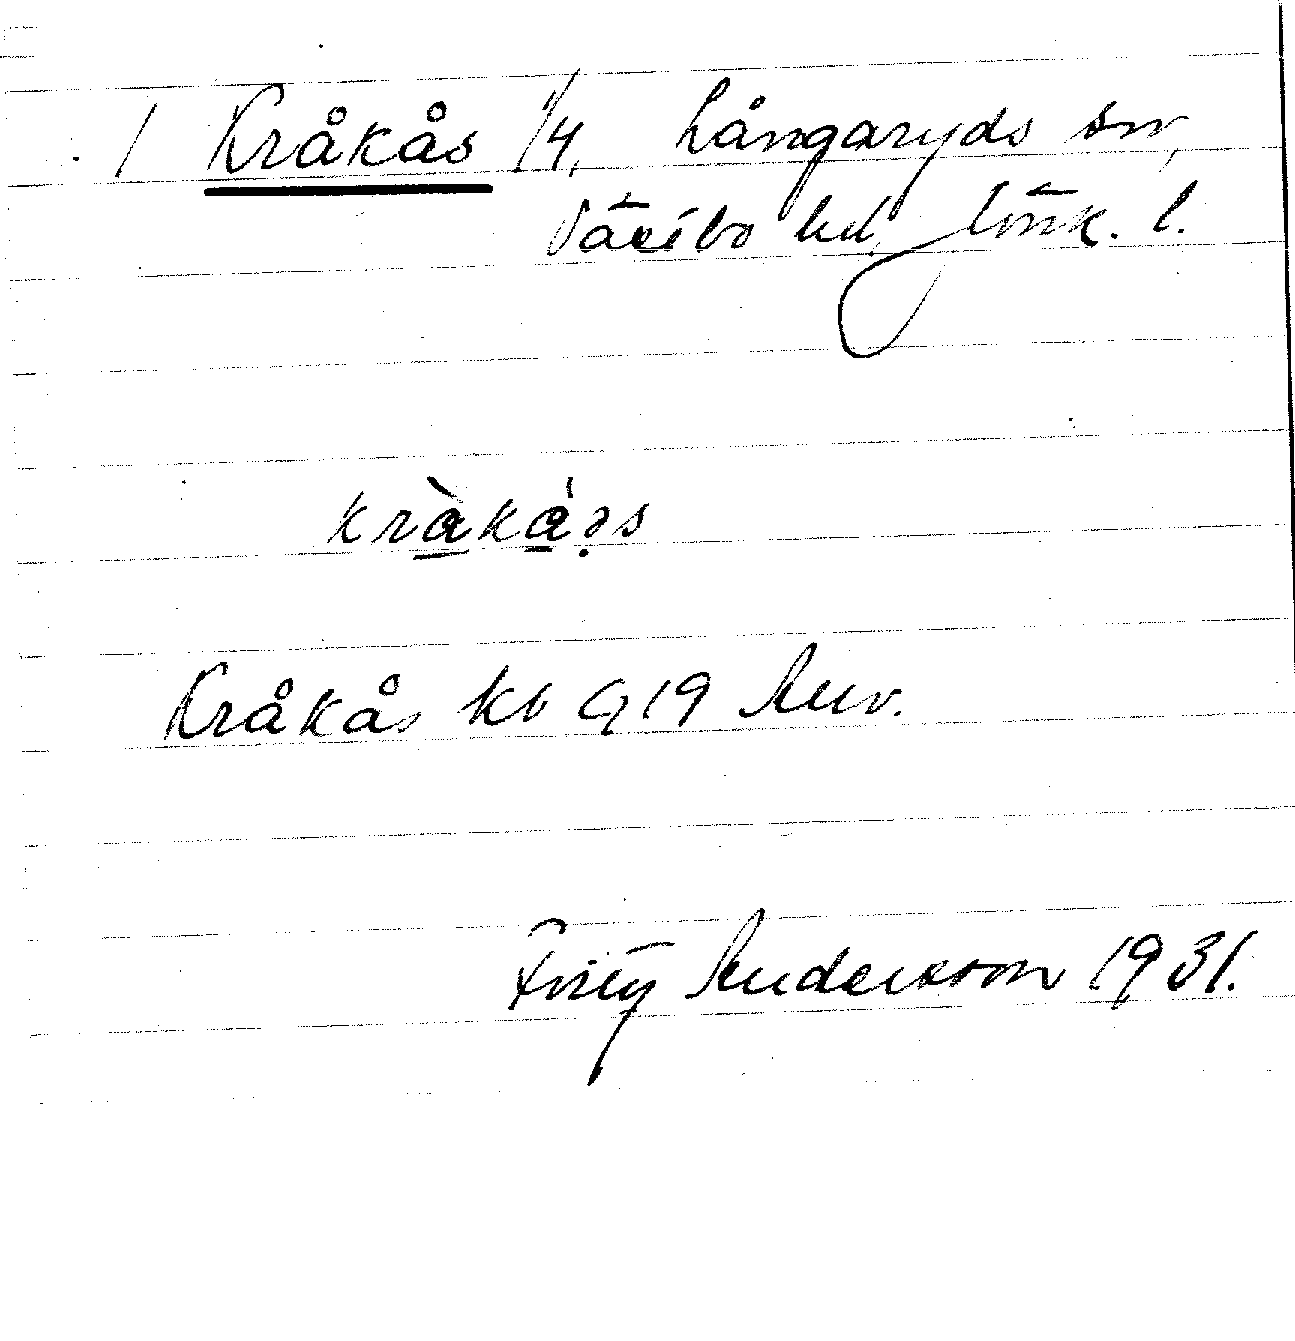 / Kråkås 1/4, Långaryds sn,
Västbo hd, Jönk. l.
kråkås
Kråkås kb G 19 Anv.
Fritz Andersson 1931.